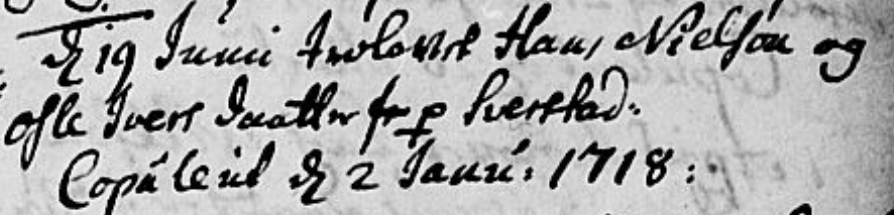 d 19 Junii trolovet Hans Nielsøn og
Osle Ivers Daatter fr p Sverstad.
Copuleret d 2 Janu: 1718: